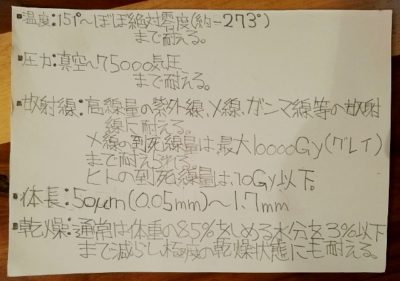 ▪温度:151°〜ほぼ絶対零度(約-273°)
まで耐える。
▪圧力:真空〜75000気圧
まで耐える。
▪放射線:高線量の紫外線、X線、ガンマ線等の放射
線に耐える。
X線の致死線量は最大10000Gy(グレイ)
まで耐えられる。
ヒトの致死線量は、10Gy以下。
▪体長:50μm(0.05mm)〜1.7mm
▪乾燥:通常は体重の85%をしめる水分を3%以下
まで減らし、極度の乾燥状態にも耐える。